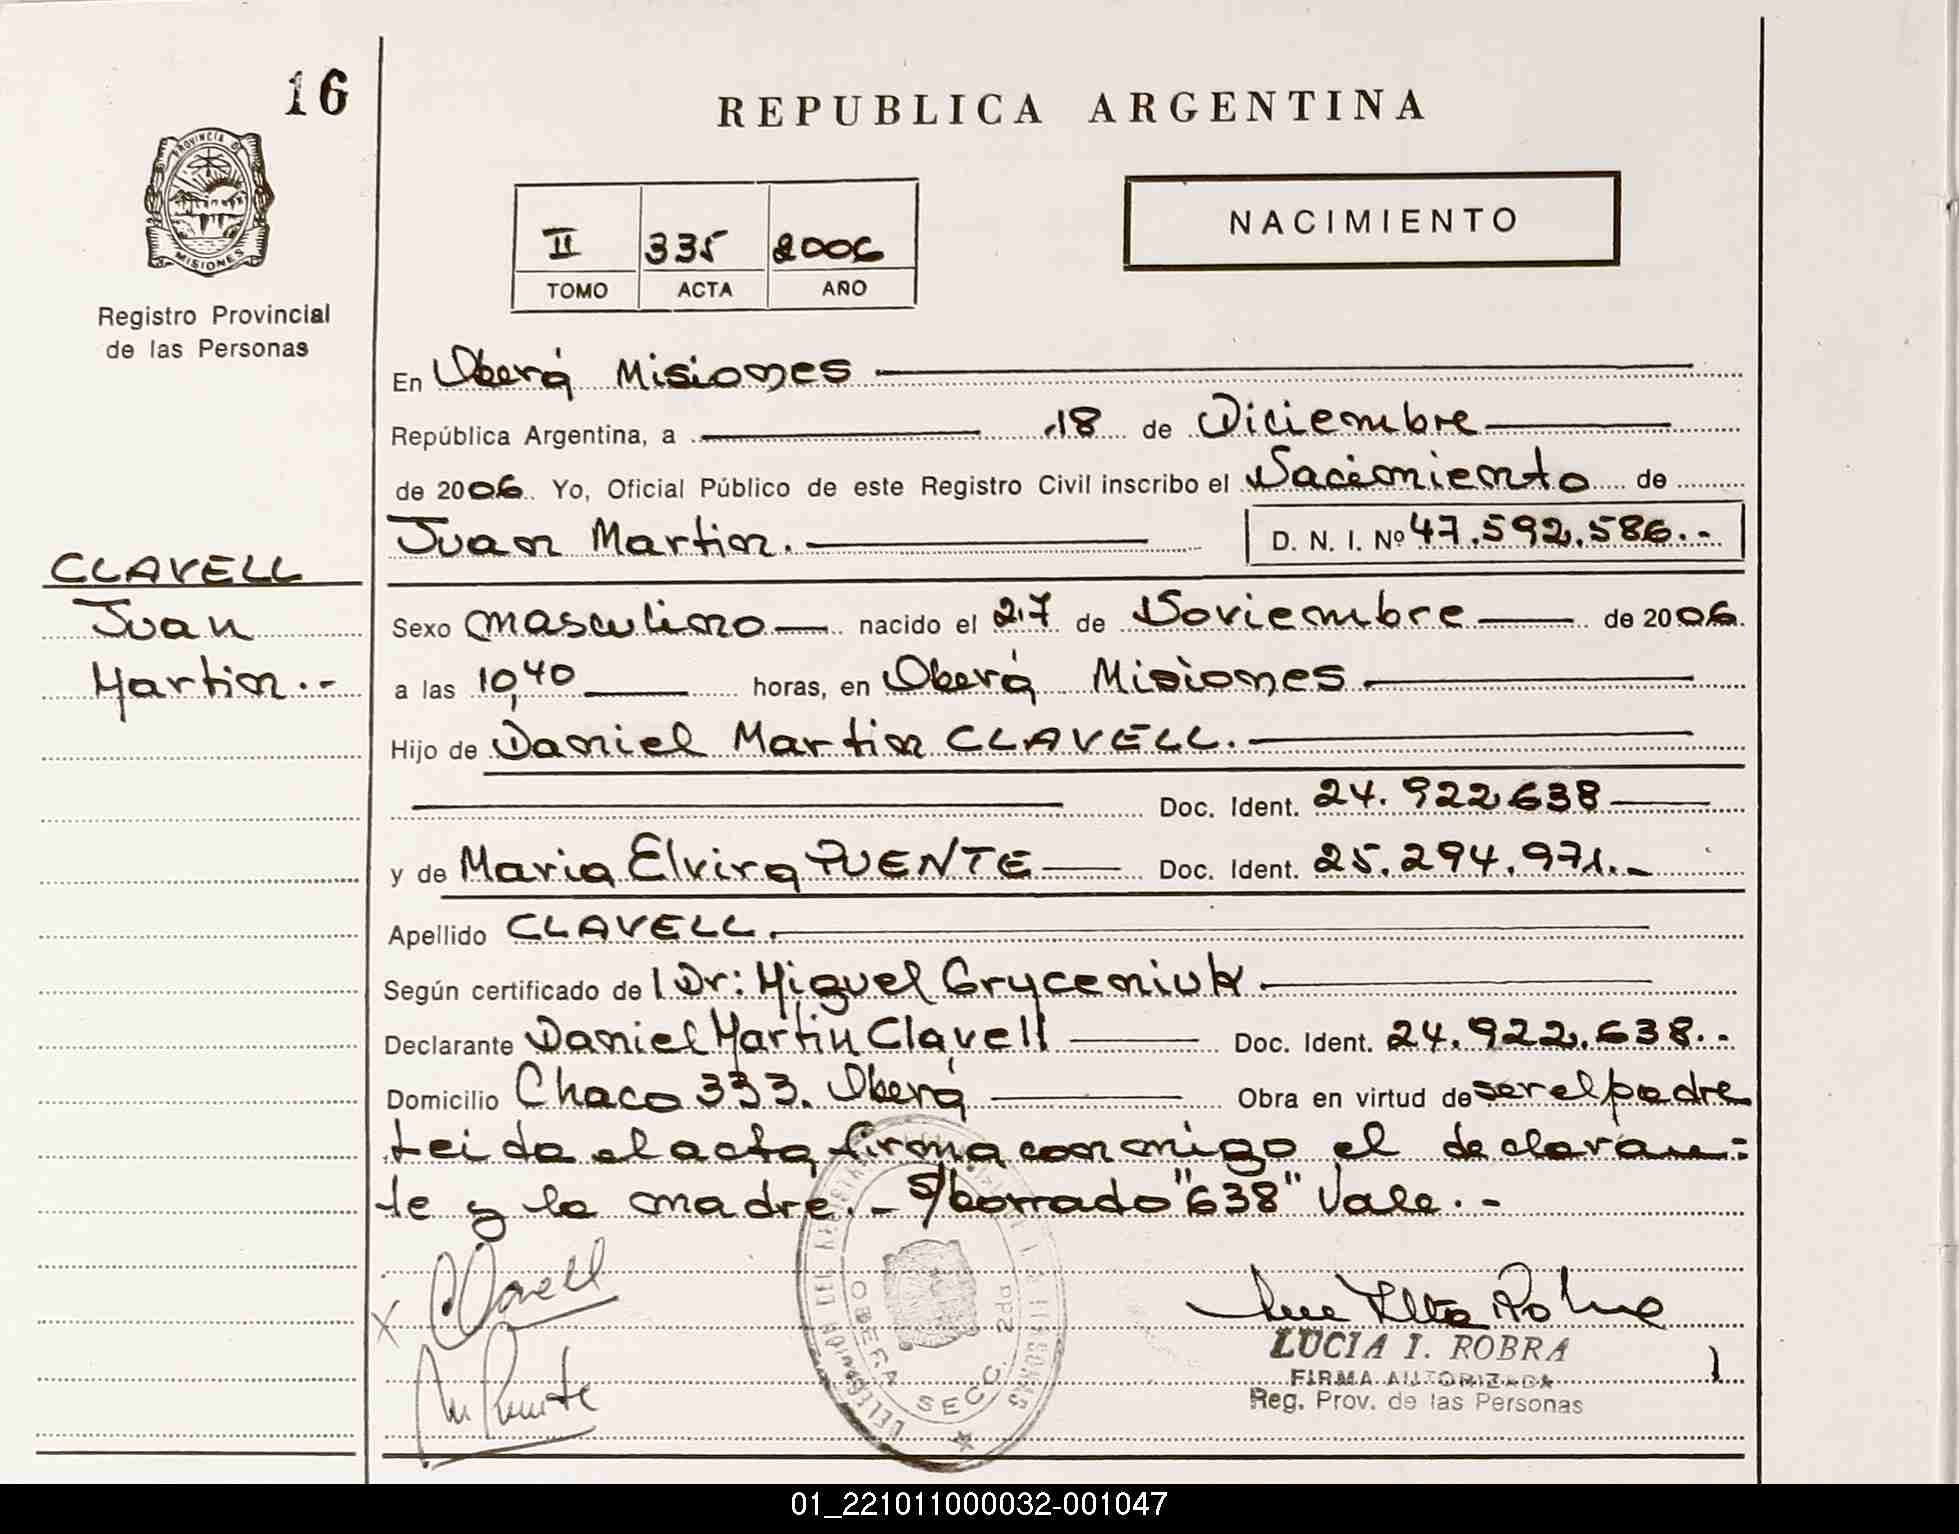 16
REPUBLICA ARGENTINA
PROVINCIA DE
MISIONES
II 335 2006
TOMO ACTA AÑO
NACIMIENTO
Registro Provincial
de las Personas
En Oberá Misiones
República Argentina, a 18 de Diciembre
de 2006. Yo, Oficial Público de este Registro Civil inscribo el Nacimiento de
Juan Martin. D. N. I. Nº 47.592.586.-
CLAVELL
Juan
Martin.-
Sexo masculino nacido el 27 de Noviembre de 2006.
a las 10,40 horas, en Oberá Misiones
Hijo de Daniel Martin CLAVELL.
Doc. Ident. 24.922.638
y de Maria Elvira PUENTE Doc. Ident. 25.294.971.-
Apellido CLAVELL.
Según certificado de l Dr: Miguel Gryceniuk
Declarante Daniel Martin Clavell Doc. Ident. 24.922.638.-
Domicilio Chaco 333. Oberá Obra en virtud de ser el padre
Leida el acta firma conmigo el declaran=
te y la madre.- S/borrado "638" Vale.-
x Clavell
M Puente
DELEGACION DEL REGISTRO DE LAS PERSONAS
OBERA SECC. 2da
LUCIA I. ROBRA
FIRMA AUTORIZADA
Reg. Prov. de las Personas
01_221011000032-001047